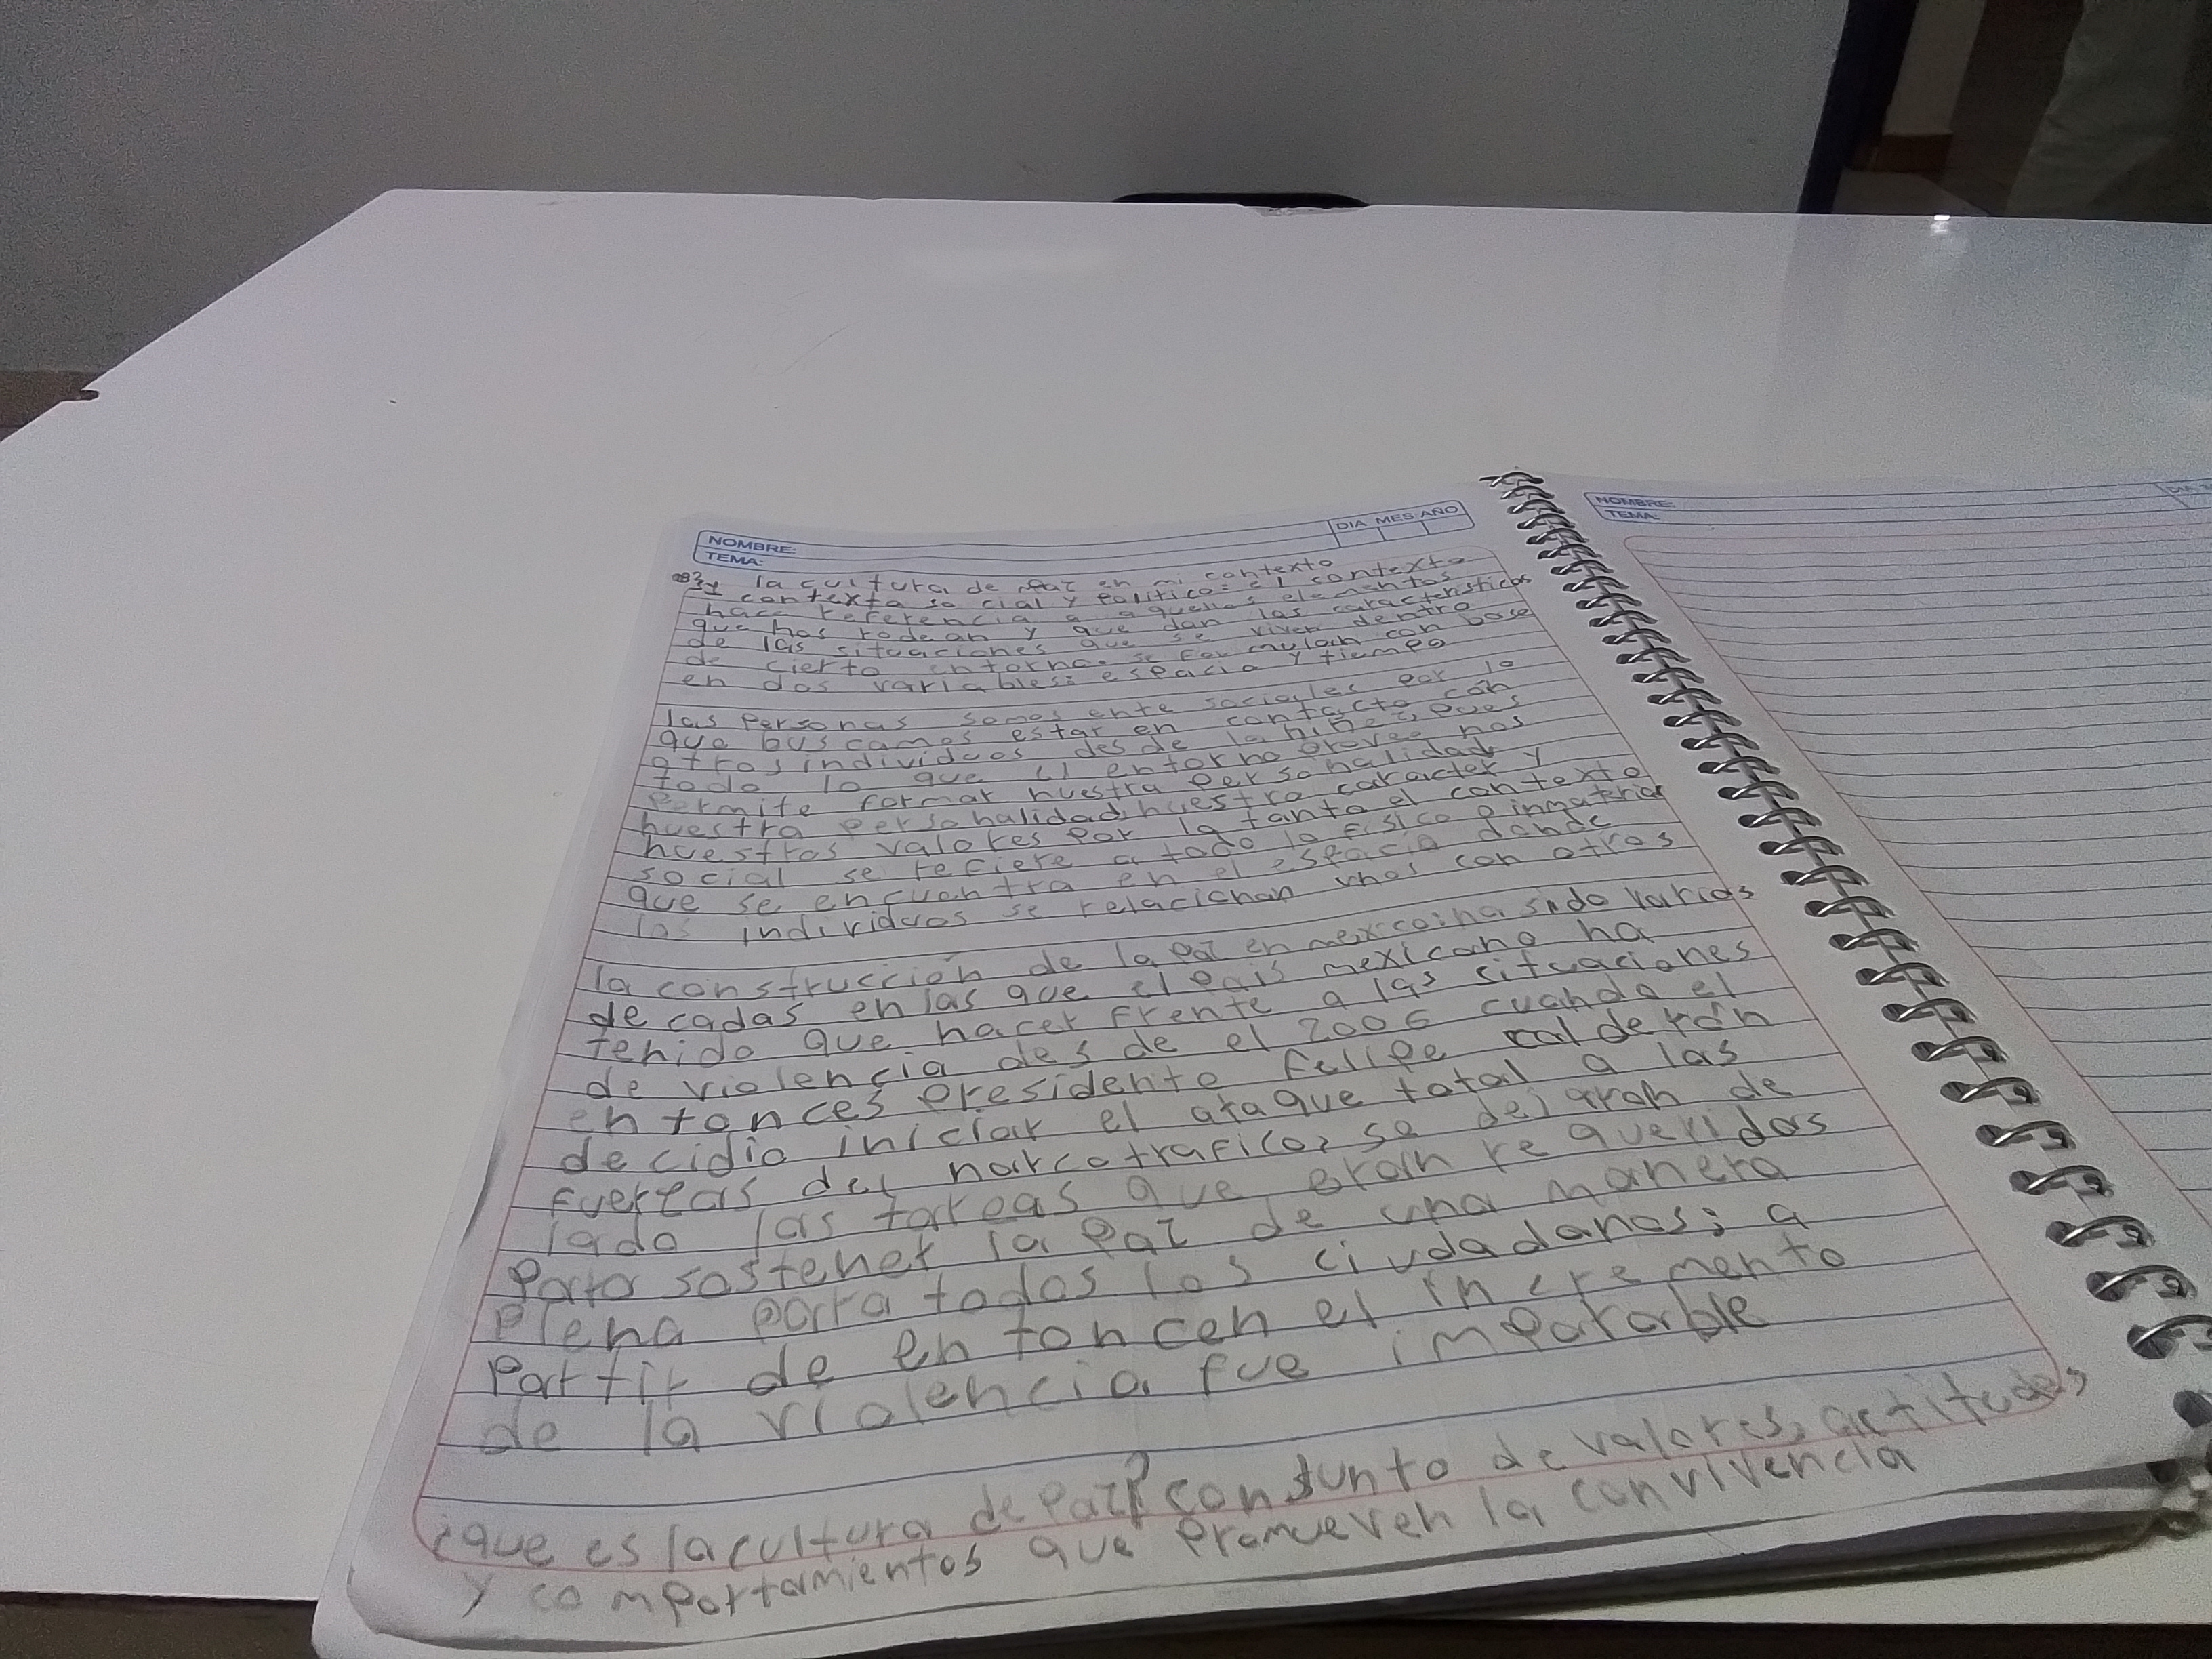 NOMBRE:
TEMA:
DIA MES AÑO
la cultura de paz en mi contexto
contexto social y politico: el contexto
hace referencia a aquellos elementos
que nos rodean y que dan las caracteristicas
de las situaciones que se viven dentro
de cierto entorno. se formulan con base
en dos variables: espacio y tiempo
las personas somos ente sociales por lo
que buscamos estar en contacto con
otros individuos desde la niñez, pues
todo lo que el entorno provee nos
permite formar nuestra personalidad
nuestra personalidad, nuestro caracter y
nuestros valores por lo tanto el contexto
social se refiere a todo lo fisico o inmaterial
que se encuentra en el espacio donde
los individuos se relacionan unos con otros
la construcción de la paz en mexco: ha sido varias
decadas en las que el pais mexicano ha
tenido que hacer frente a las situaciones
de violencia desde el 2006 cuando el
entonces presidente felipe calderón
decidio iniciar el ataque total a las
fuerzas del narcotrafico, se dejaron de
lado las tareas que eran requeridas
para sostener la paz de una manera
plena para todos los ciudadanos; a
partir de entoncen el incremento
de la violencia fue imparable
¿que es la cultura de paz? conjunto de valores, actitudes
y comportamientos que promueven la convivencia
NOMBRE:
TEMA: